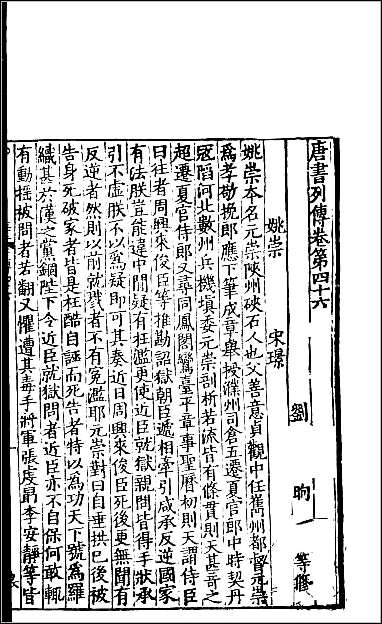 唐書列傳卷第四十六
劉 昫 等修
姚崇 宋璟
姚崇本名元崇陝州硤石人也父善意貞觀中任嶲州都督元崇
爲孝敬挽郎應下筆成章舉授濮州司倉五遷夏官郎中時契丹
寇䧟河北數州兵機填委元崇剖析若流皆有條貫則天甚奇之
超遷夏官侍郎又尋同鳳閣鸞臺平章事聖曆初則天謂侍臣
曰往者周興來俊臣等推勘詔獄朝臣遞相牽引咸承反逆國家
有法朕豈能違中間疑有枉濫更使近臣就獄親問皆得手狀承
引不虛朕不以爲疑即可其奏近日周興來俊臣死後更無聞有
反逆者然則以前就戮者不有冤濫耶元崇對曰自垂拱已後被
告身死破家者皆是枉酷自誣而死告者特以爲功天下號爲羅
織甚於漢之黨錮陛下令近臣就獄問者近臣亦不自保何敢輒
有動搖被問者若翻又懼遭其毒手將軍張虔勗李安靜等皆